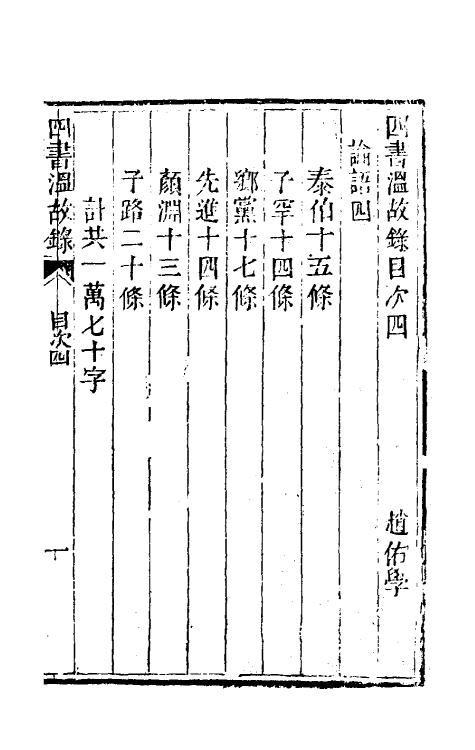 四書溫故錄目次四 趙佑學
論語四
泰伯十五條
子罕十四條
鄉黨十七條
先進十四條
顏淵十三條
子路二十條
計共一萬七十字
四書溫故錄 目次四 十